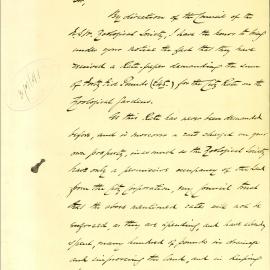 Sir,
By direction of the Council of the
N.S.W. Zoological Society, I have the honor to bring
under your notice the fact that they have
received a Rate-paper demanding the sum
of Forty five Pounds (£45) for the City Rate on the
Zoological Gardens.
As this Rate has never been demanded
before, and is moreover a rate charged on your
own property, inasmuch as the Zoological Society
have only a permissive occupancy of the land
from the City Corporation, my Council trust
that the above mentioned rate will not be
enforced, as they are spending and have already
spent, many hundred of pounds in drainage
and improving the land, and in keeping